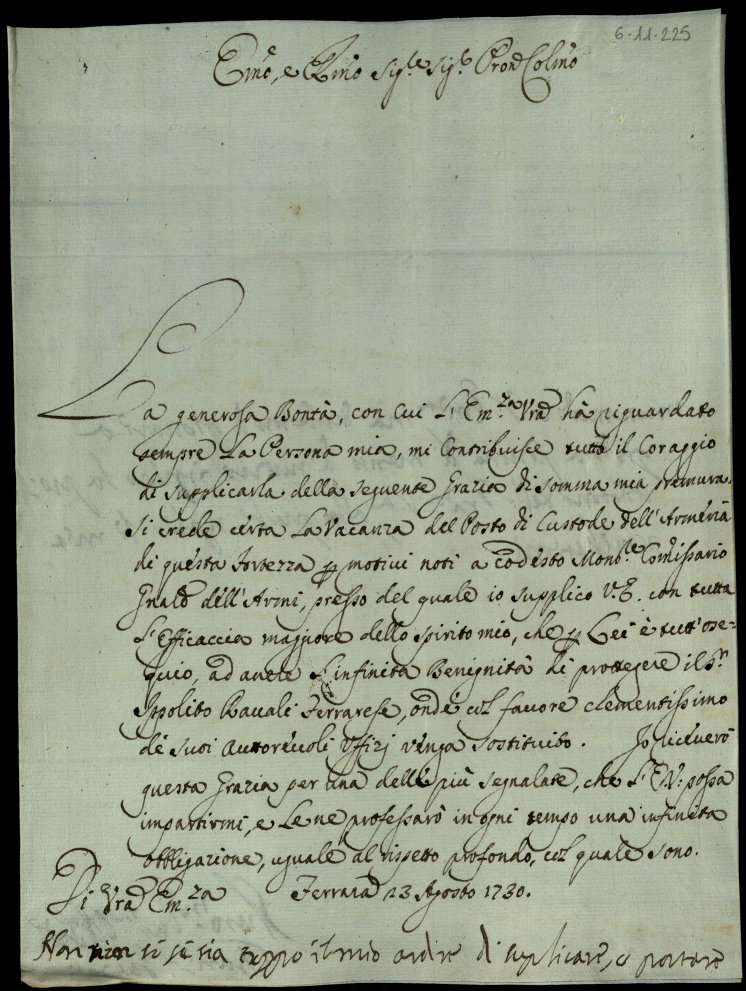 6-11-225
Emo, e Rmo Sig.re Sig.r Pron Colmo
La generosa Bontà, con cui L'Em.za Vra hà riguardato
sempre La Persona mia, mi Contribuisce tutto il Coraggio
di supplicarla della seguente Grazia di somma mia premura.
Si crede certa La Vacanza del Posto di Custode dell'Armeria
di questa Fortezza p motivi noti a codesto Mons.re Comissario
Gnale dell'Armi, presso del quale io supplico V.E. con tutta
L'Efficaccia maggiore dello spirito mio, che p Lei è tutt'osse=
quio, ad avere L'infinita Benignità di proteggere il S.r
Ippolito Ravali Ferrarese, onde col favore clementissimo
de suoi Auttorevoli Uffizj venga sostituito. Io riceverò
questa Grazia per una delle più segnalate, che L'E.V. possa
impartirmi, e Le ne professarò in ogni tempo una infinita
obbligazione, uguale al rispetto profondo, col quale sono.
Di Vra Em.za Ferrara 23 Agosto 1730.
Non si se sia troppo il mio ardire di suplicare, a portare